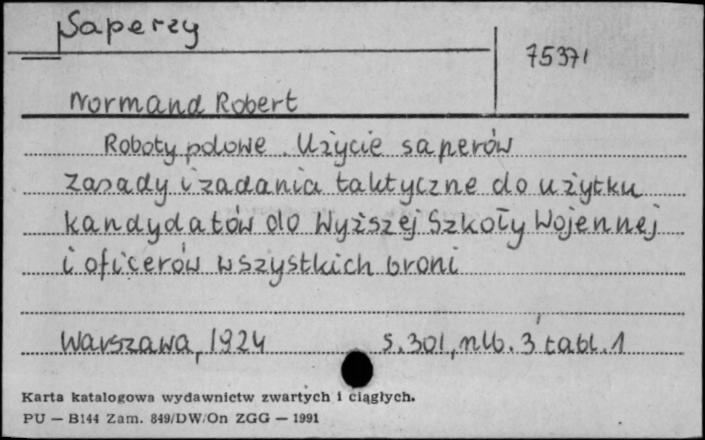 Saperzy
75371
Normand Robert
Roboty polowe. Użycie saperów
zasady i zadania taktyczne do użytku
kandydatów do Wyższej Szkoły Wojennej
i oficerów wszystkich broni
Warszawa, 1924 s. 301, nlb. 3 tabl. 1
Karta katalogowa wydawnictw zwartych i ciągłych.
PU — B144 Zam. 849/DW/On ZGG — 1991